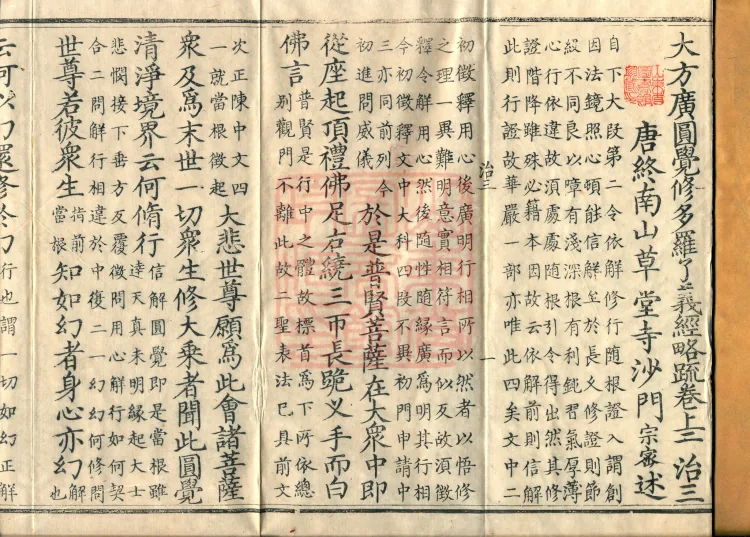 大方廣圓覺修多羅了義經略疏卷上三 治三
唐終南山草堂寺沙門宗密述
自下大段第二令依解修行隨根證入謂創
因法鏡照心頓能信解至於長久修證則節
級不同良以障有淺深根有利鈍習氣厚薄
心行依違故須處處隨根引令得出然其修
證階降雖殊必藉本因故云依解前則信解
此則行證故華嚴一部亦唯此四矣文中二
初徵釋用心後廣明行相所以然者以悟修
之理一異難明意實相符言而似反故須徵
釋令解用心然後隨性隨緣廣爲明其行相
今初徵釋文中大科四段不異初門申請中
三亦同前列今
初進問威儀
於是普賢菩薩在大衆中即
從座起頂禮佛足右繞三帀長跪叉手而白
佛言
普賢是行中之體故標首爲下所依總
別觀門不離此故二聖表法已具前文
次正陳中文四
一就當根徵起
大悲世尊願爲此會諸菩薩
衆及爲末世一切衆生修大乘者聞此圓覺
清淨境界云何脩行
信解圓覺即是當根雖
達天真未明緣起大士
悲憫接下垂方反覆徵問用心解行如何契
合二問解行相違於中復二一幻幻何修問
世尊若彼衆生
當根
知如幻者身心亦幻
解
也
云何以幻還修於幻
行也謂一切如幻正解
治三
一